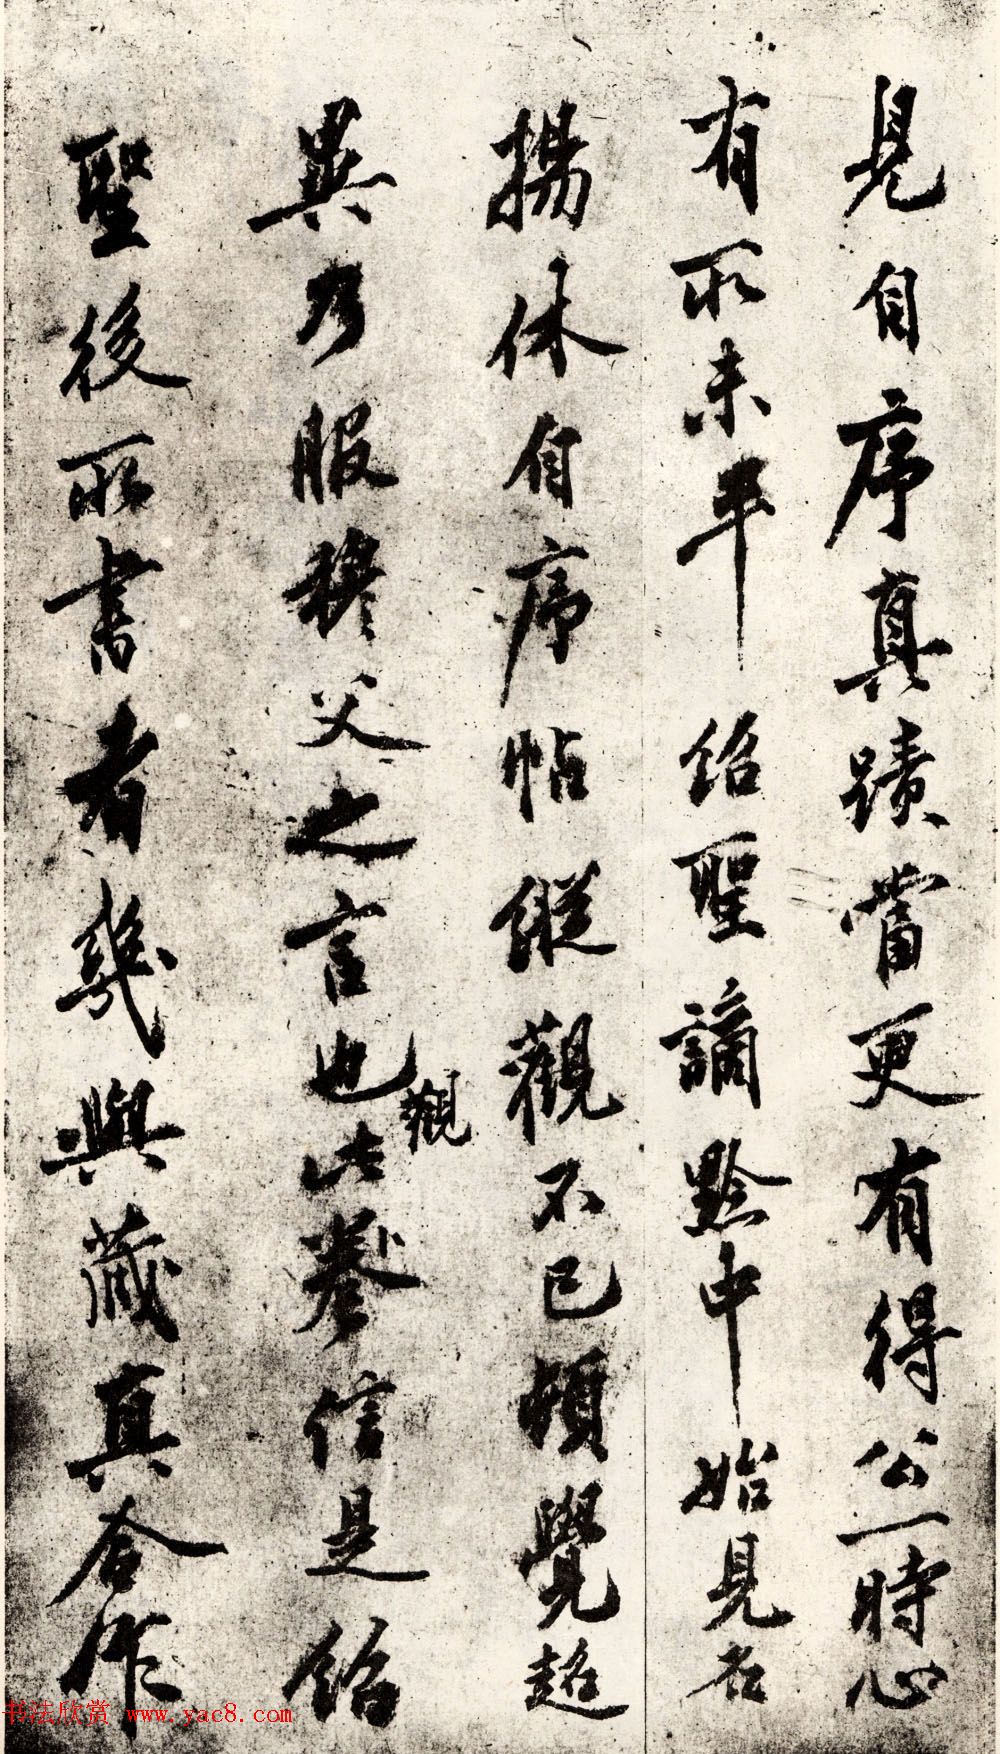 見自序真蹟當更有得公一時心
有所未平　紹聖謫黔中　始見石
揚休自序帖縱觀不已頓覺超
異乃服穆父之言也觀此卷信是紹
聖後所書者幾與藏真合作
书法欣赏 www.yac8.com